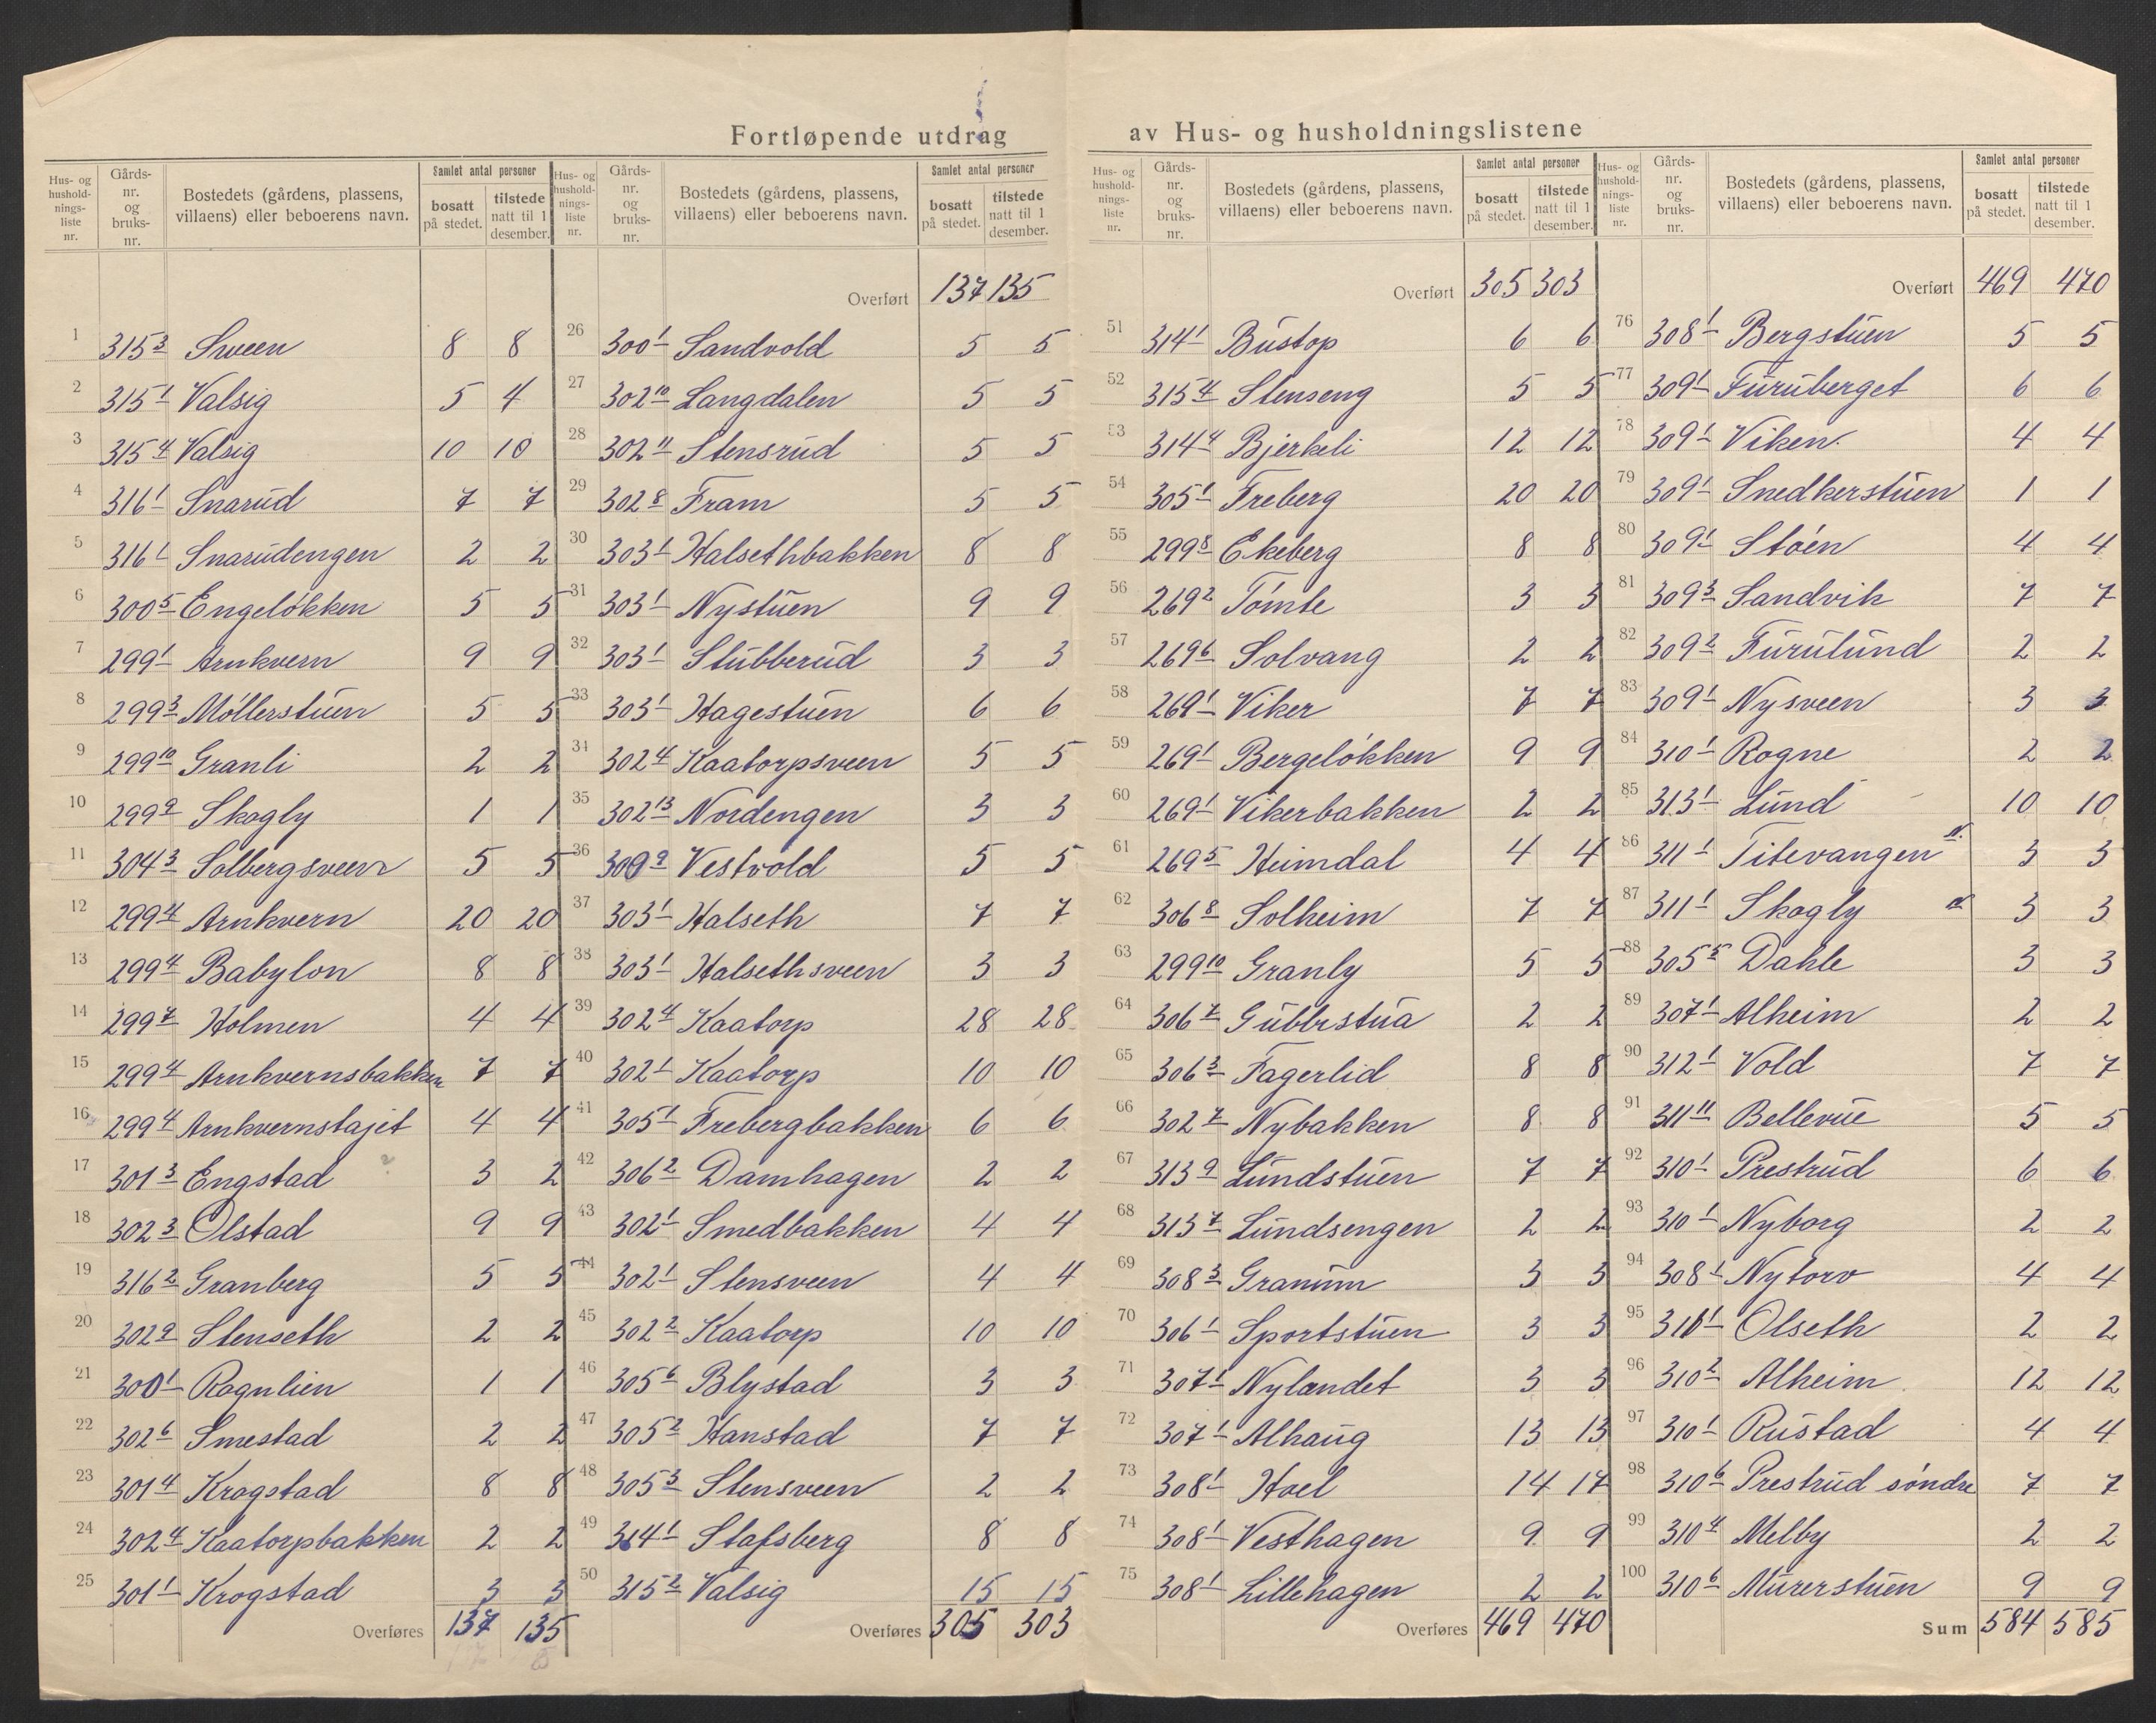 Fortløpende utdrag av Hus- og husholdningslistene
Hus- og husholdningsliste nr. | Gårds- nr. og bruks- nr. | Bostedets (gårdens, plassens, villaens) eller beboerens navn. | Samlet antal personer bosatt på stedet. | tilstede natt til 1 desember.
1 315 3 Sween 8 8
2 315 1 Valsig 5 4
3 315 4 Valsig 10 10
4 316 1 Snarud 7 7
5 316 1 Snarudengen 2 2
6 300 5 Engeløkken 5 5
7 299 1 Arnkvern 9 9
8 299 3 Møllerstuen 5 5
9 299 10 Granli 2 2
10 299 9 Skogly 1 1
11 304 3 Solbergsveen 5 5
12 299 4 Arnkvern 20 20
13 299 4 Babylon 8 8
14 299 7 Holmen 4 4
15 299 4 Arnkvernsbakken 7 7
16 299 4 Arnkvernstajet 4 4
17 301 3 Engstad 3 2
18 302 3 Olstad 9 9
19 316 2 Granberg 5 5
20 302 9 Stenseth 2 2
21 300 1 Rognlien 1 1
22 302 6 Smestad 2 2
23 301 4 Krogstad 8 8
24 302 4 Kaatorpbakken 2 2
25 301 1 Krogstad 3 3
Overføres 137 135
Hus- og husholdningsliste nr. | Gårds- nr. og bruks- nr. | Bostedets (gårdens, plassens, villaens) eller beboerens navn. | Samlet antal personer bosatt på stedet. | tilstede natt til 1 desember.
Overført 137 135
26 300 1 Sandvold 5 5
27 302 10 Langdalen 5 5
28 302 11 Stensrud 5 5
29 302 8 Fram 5 5
30 303 1 Halsethbakken 8 8
31 303 1 Nystuen 9 9
32 303 1 Stubberud 3 3
33 303 1 Hagestuen 6 6
34 302 4 Kaatorpsveen 5 5
35 302 13 Nordengen 3 3
36 300 9 Vestvold 5 5
37 303 1 Halseth 7 7
38 303 1 Halsethsveen 3 3
39 302 4 Kaatorp 28 28
40 302 1 Kaatorp 10 10
41 305 1 Frebergbakken 6 6
42 306 2 Damhagen 2 2
43 302 1 Smedbakken 4 4
44 302 1 Stensveen 4 4
45 302 2 Kaatorp 10 10
46 305 6 Blystad 3 3
47 305 2 Hanstad 7 7
48 305 3 Stensveen 2 2
49 314 1 Stafsberg 8 8
50 315 2 Valsig 15 15
Overføres 305 303
Hus- og husholdningsliste nr. | Gårds- nr. og bruks- nr. | Bostedets (gårdens, plassens, villaens) eller beboerens navn. | Samlet antal personer bosatt på stedet. | tilstede natt til 1 desember.
Overført 305 303
51 314 1 Bustop 6 6
52 315 4 Stenseng 5 5
53 314 4 Bjerkeli 12 12
54 305 1 Freberg 20 20
55 299 8 Ekeberg 8 8
56 269 2 Tømte 3 3
57 269 6 Solvang 2 2
58 269 1 Viker 7 7
59 269 1 Bergeløkken 9 9
60 269 1 Vikerbakken 2 2
61 269 5 Heimdal 4 4
62 306 8 Solheim 7 7
63 299 10 Granly 5 5
64 306 7 Gubbestua 2 2
65 306 3 Fagerlid 8 8
66 302 7 Nybakken 8 8
67 313 9 Lundstuen 7 7
68 313 7 Lundsengen 2 2
69 308 3 Granum 3 3
70 306 1 Sportstuen 3 3
71 307 1 Nylandet 3 3
72 307 1 Alhaug 13 13
73 308 1 Hoel 14 17
74 308 1 Vesthagen 9 9
75 308 1 Lillehagen 2 2
Overføres 469 470
Hus- og husholdningsliste nr. | Gårds- nr. og bruks- nr. | Bostedets (gårdens, plassens, villaens) eller beboerens navn. | Samlet antal personer bosatt på stedet. | tilstede natt til 1 desember.
Overført 469 470
76 308 1 Bergstuen 5 5
77 309 1 Furuberget 6 6
78 309 1 Viken 4 4
79 309 1 Snedkerstuen 1 1
80 309 1 Støen 4 4
81 309 3 Sandvik 7 7
82 309 2 Furulund 2 2
83 309 1 Nysveen 3 3
84 310 1 Rogne 2 2
85 313 1 Lund 10 10
86 311 1 Titevangen 3 3
87 311 1 Skogly 3 3
88 305 5 Dahle 3 3
89 307 1 Alheim 2 2
90 312 1 Vold 7 7
91 311 11 Bellevue 5 5
92 310 1 Prestrud 6 6
93 310 1 Nyborg 2 2
94 308 1 Nytorv 4 4
95 310 1 Olseth 2 2
96 310 2 Alheim 12 12
97 310 1 Rustad 4 4
98 310 6 Prestrud søndre 7 7
99 310 4 Melby 2 2
100 310 6 Murerstuen 9 9
Sum 584 585